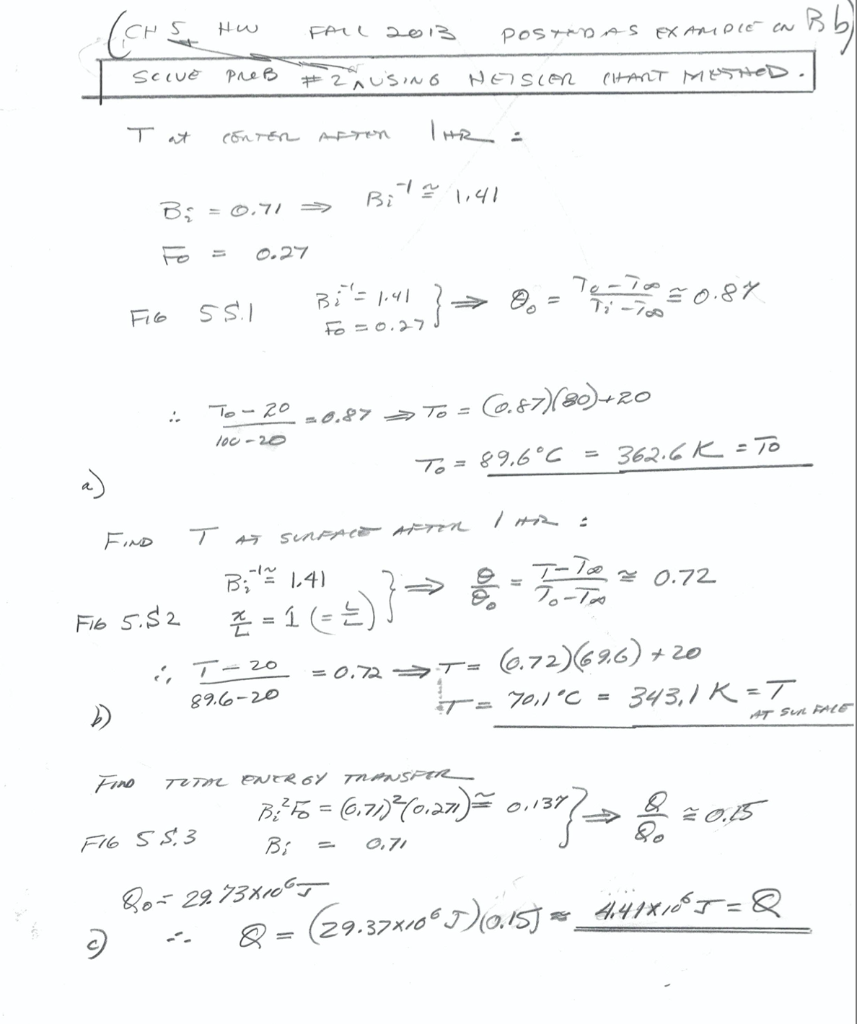 (CH 5 HW FALL 2013 POSTED AS EXAMPLE ON Bb)
SOLVE PROB #2 ^ USING HEISLER CHART METHOD.
T at CENTER AFTER 1 HR =
Bi = 0.71 ⇒ Bi⁻¹ ≅ 1.41
Fo = 0.27
FIG 5 S.1 Bi⁻¹ = 1.41 Fo = 0.27 } ⇒ θ₀ = (T₀ - T∞)/(Ti - T∞) ≅ 0.87
∴ (T₀ - 20)/(100 - 20) = 0.87 ⇒ T₀ = (0.87)(80) + 20
T₀ = 89.6°C = 362.6 K = T₀
a)
FIND T AT SURFACE AFTER 1 HR =
Bi⁻¹ ≅ 1.41
FIG 5.S2 x/L = 1 (= L/L) } ⇒ θ/θ₀ = (T - T∞)/(T₀ - T∞) ≅ 0.72
∴ (T - 20)/(89.6 - 20) = 0.72 ⇒ T = (0.72)(69.6) + 20
T = 70.1°C = 343.1 K = T
AT SURFACE
b)
FIND TOTAL ENERGY TRANSFER
Bi²Fo = (0.71)²(0.271) ≅ 0.137
FIG 5 S.3 Bi = 0.71 } ⇒ Q/Q₀ ≅ 0.15
Q₀ = 29.73×10⁶ J
c) ∴ Q = (29.37×10⁶ J)(0.15) ≈ 4.41×10⁶ J = Q